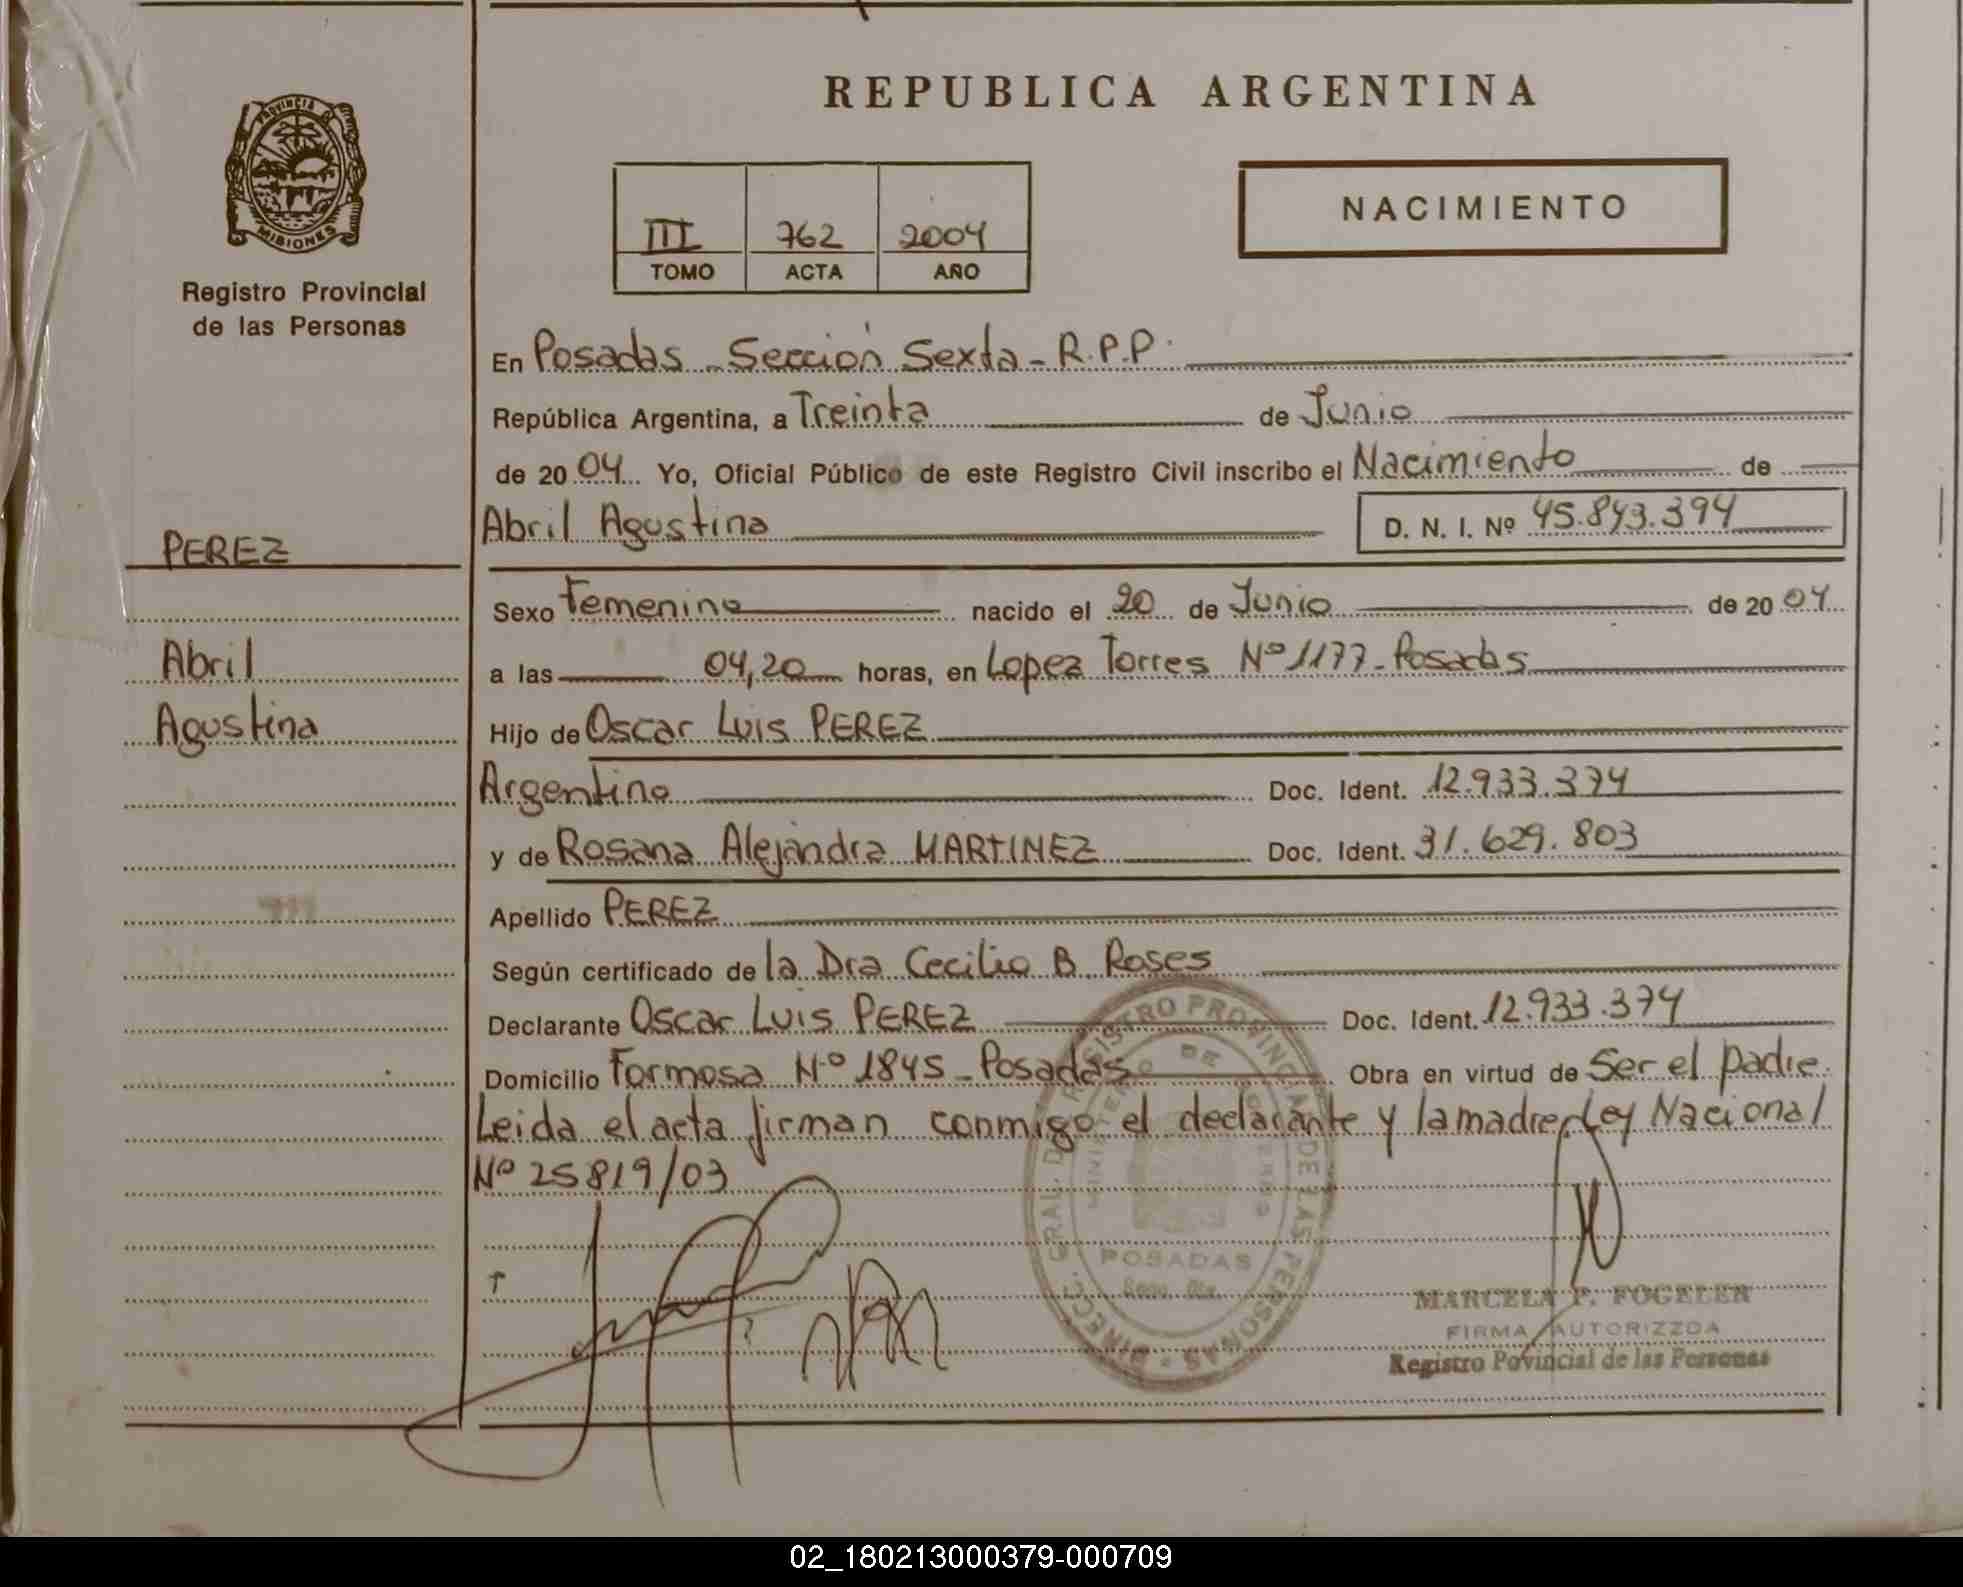 REPUBLICA ARGENTINA
PROVINCIA DE
MISIONES
Registro Provincial
de las Personas
III 762 2004
TOMO ACTA AÑO
NACIMIENTO
En Posadas - Sección Sexta - R.P.P.
República Argentina, a Treinta de Junio
de 2004 Yo, Oficial Público de este Registro Civil inscribo el Nacimiento de
Abril Agustina D. N. I. Nº 45.843.394
PEREZ
Sexo Femenino nacido el 20 de Junio de 2004
Abril
a las 04,20 horas, en Lopez Torres Nº 1177 - Posadas
Agustina
Hijo de Oscar Luis PEREZ
Argentino Doc. Ident. 12.933.374
y de Rosana Alejandra MARTINEZ Doc. Ident. 31.629.803
Apellido PEREZ
Según certificado de la Dra Cecilia B Roses
Declarante Oscar Luis PEREZ Doc. Ident. 12.933.374
Domicilio Formosa Nº 1845 - Posadas Obra en virtud de Ser el padre.
Leida el acta firman conmigo el declarante y la madre, Ley Nacional
Nº 25819/03
DIRECC. GRAL. DE REGISTRO PROVINCIAL DE LAS PERSONAS
MINISTERIO DE GOBIERNO
POSADAS
MARCELA P. FOGELER
FIRMA AUTORIZZDA
Registro Povincial de las Personas
02_180213000379-000709